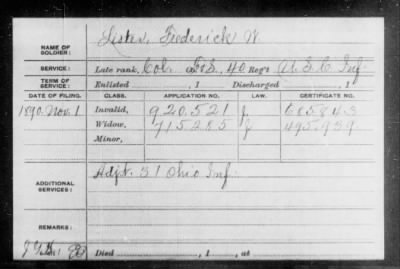 NAME OF SOLDIER: Lister, Frederick W.
SERVICE: Late rank, Col. F&S, 40 Reg't U.S.C. Inf.
TERM OF SERVICE: Enlisted , 1 Discharged , 1
DATE OF FILING. CLASS. APPLICATION NO. LAW. CERTIFICATE NO.
1890. Nov. 1 Invalid, 920.521 685843
Widow, 715.285 495.939
Minor,
ADDITIONAL SERVICES: Adjt. 31 Ohio Inf.
REMARKS:
Died , 1 , at